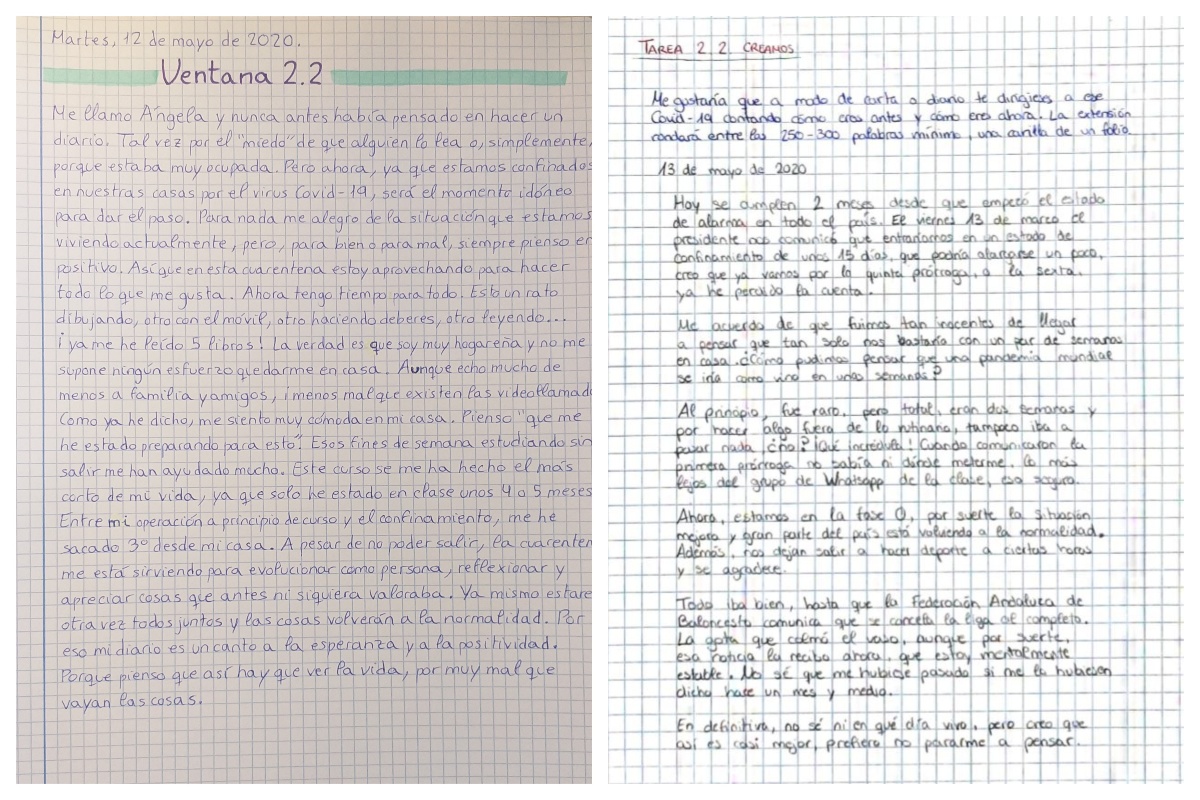 Martes, 12 de mayo de 2020.
Ventana 2.2
Me llamo Ángela y nunca antes había pensado en hacer un
diario. Tal vez por el "miedo" de que alguien lo lea o, simplemente,
porque estaba muy ocupada. Pero ahora, ya que estamos confinados
en nuestras casas por el virus Covid-19, será el momento idóneo
para dar el paso. Para nada me alegro de la situación que estamos
viviendo actualmente, pero, para bien o para mal, siempre pienso en
positivo. Así que en esta cuarentena estoy aprovechando para hacer
todo lo que me gusta. Ahora tengo tiempo para todo. Esto un rato
dibujando, otro con el móvil, otro haciendo deberes, otro leyendo...
¡ya me he leído 5 libros! La verdad es que soy muy hogareña y no me
supone ningún esfuerzo quedarme en casa. Aunque echo mucho de
menos a familia y amigos, ¡menos mal que existen las videollamad
Como ya he dicho, me siento muy cómoda en mi casa. Pienso "que me
he estado preparando para esto". Esos fines de semana estudiando sin
salir me han ayudado mucho. Este curso se me ha hecho el más
corto de mi vida, ya que solo he estado en clase unos 4 o 5 meses
Entre mi operación a principio de curso y el confinamiento, me he
sacado 3º desde mi casa. A pesar de no poder salir, la cuarenten
me está sirviendo para evolucionar como persona, reflexionar y
apreciar cosas que antes ni siquiera valoraba. Ya mismo estare
otra vez todos juntos y las cosas volverán a la normalidad. Por
eso mi diario es un canto a la esperanza y a la positividad.
Porque pienso que así hay que ver la vida, por muy mal que
vayan las cosas.
TAREA 2.2. CREAMOS
Me gustaría que a modo de carta o diario te dirigieses a ese
Covid-19 contando cómo eras antes y cómo eres ahora. La extensión
rondará entre las 250-300 palabras mínimo, una carilla de un folio.
13 de mayo de 2020
Hoy se cumplen 2 meses desde que empezó el estado
de alarma en todo el país. El viernes 13 de marzo el
presidente nos comunicó que entraríamos en un estado de
confinamiento de unos 15 días, que podría alargarse un poco,
creo que ya vamos por la quinta prórroga, o la sexta,
ya he perdido la cuenta.
Me acuerdo de que fuimos tan inocentes de llegar
a pensar que tan solo nos bastaría con un par de semanas
en casa. ¿Cómo pudimos pensar que una pandemia mundial
se iría como vino en unas semanas?
Al principio, fue raro, pero total, eran dos semanas y
por hacer algo fuera de lo rutinario, tampoco iba a
pasar nada ¿no? ¡Qué incrédula! Cuando comunicaron la
primera prórroga no sabía ni dónde meterme, lo más
lejos del grupo de Whatsapp de la clase, eso seguro.
Ahora, estamos en la fase 0, por suerte la situación
mejora y gran parte del país está volviendo a la normalidad.
Además, nos dejan salir a hacer deporte a ciertas horas
y se agradece.
Todo iba bien, hasta que la Federación Andaluza de
Baloncesto comunica que se cancela la liga al completo.
La gota que colmó el vaso, aunque por suerte,
esa noticia la recibo ahora, que estoy mentalmente
estable. No sé que me hubiese pasado si me lo hubiesen
dicho hace un mes y medio.
En definitiva, no sé ni en qué día vivo, pero creo que
así es casi mejor, prefiero no pararme a pensar.